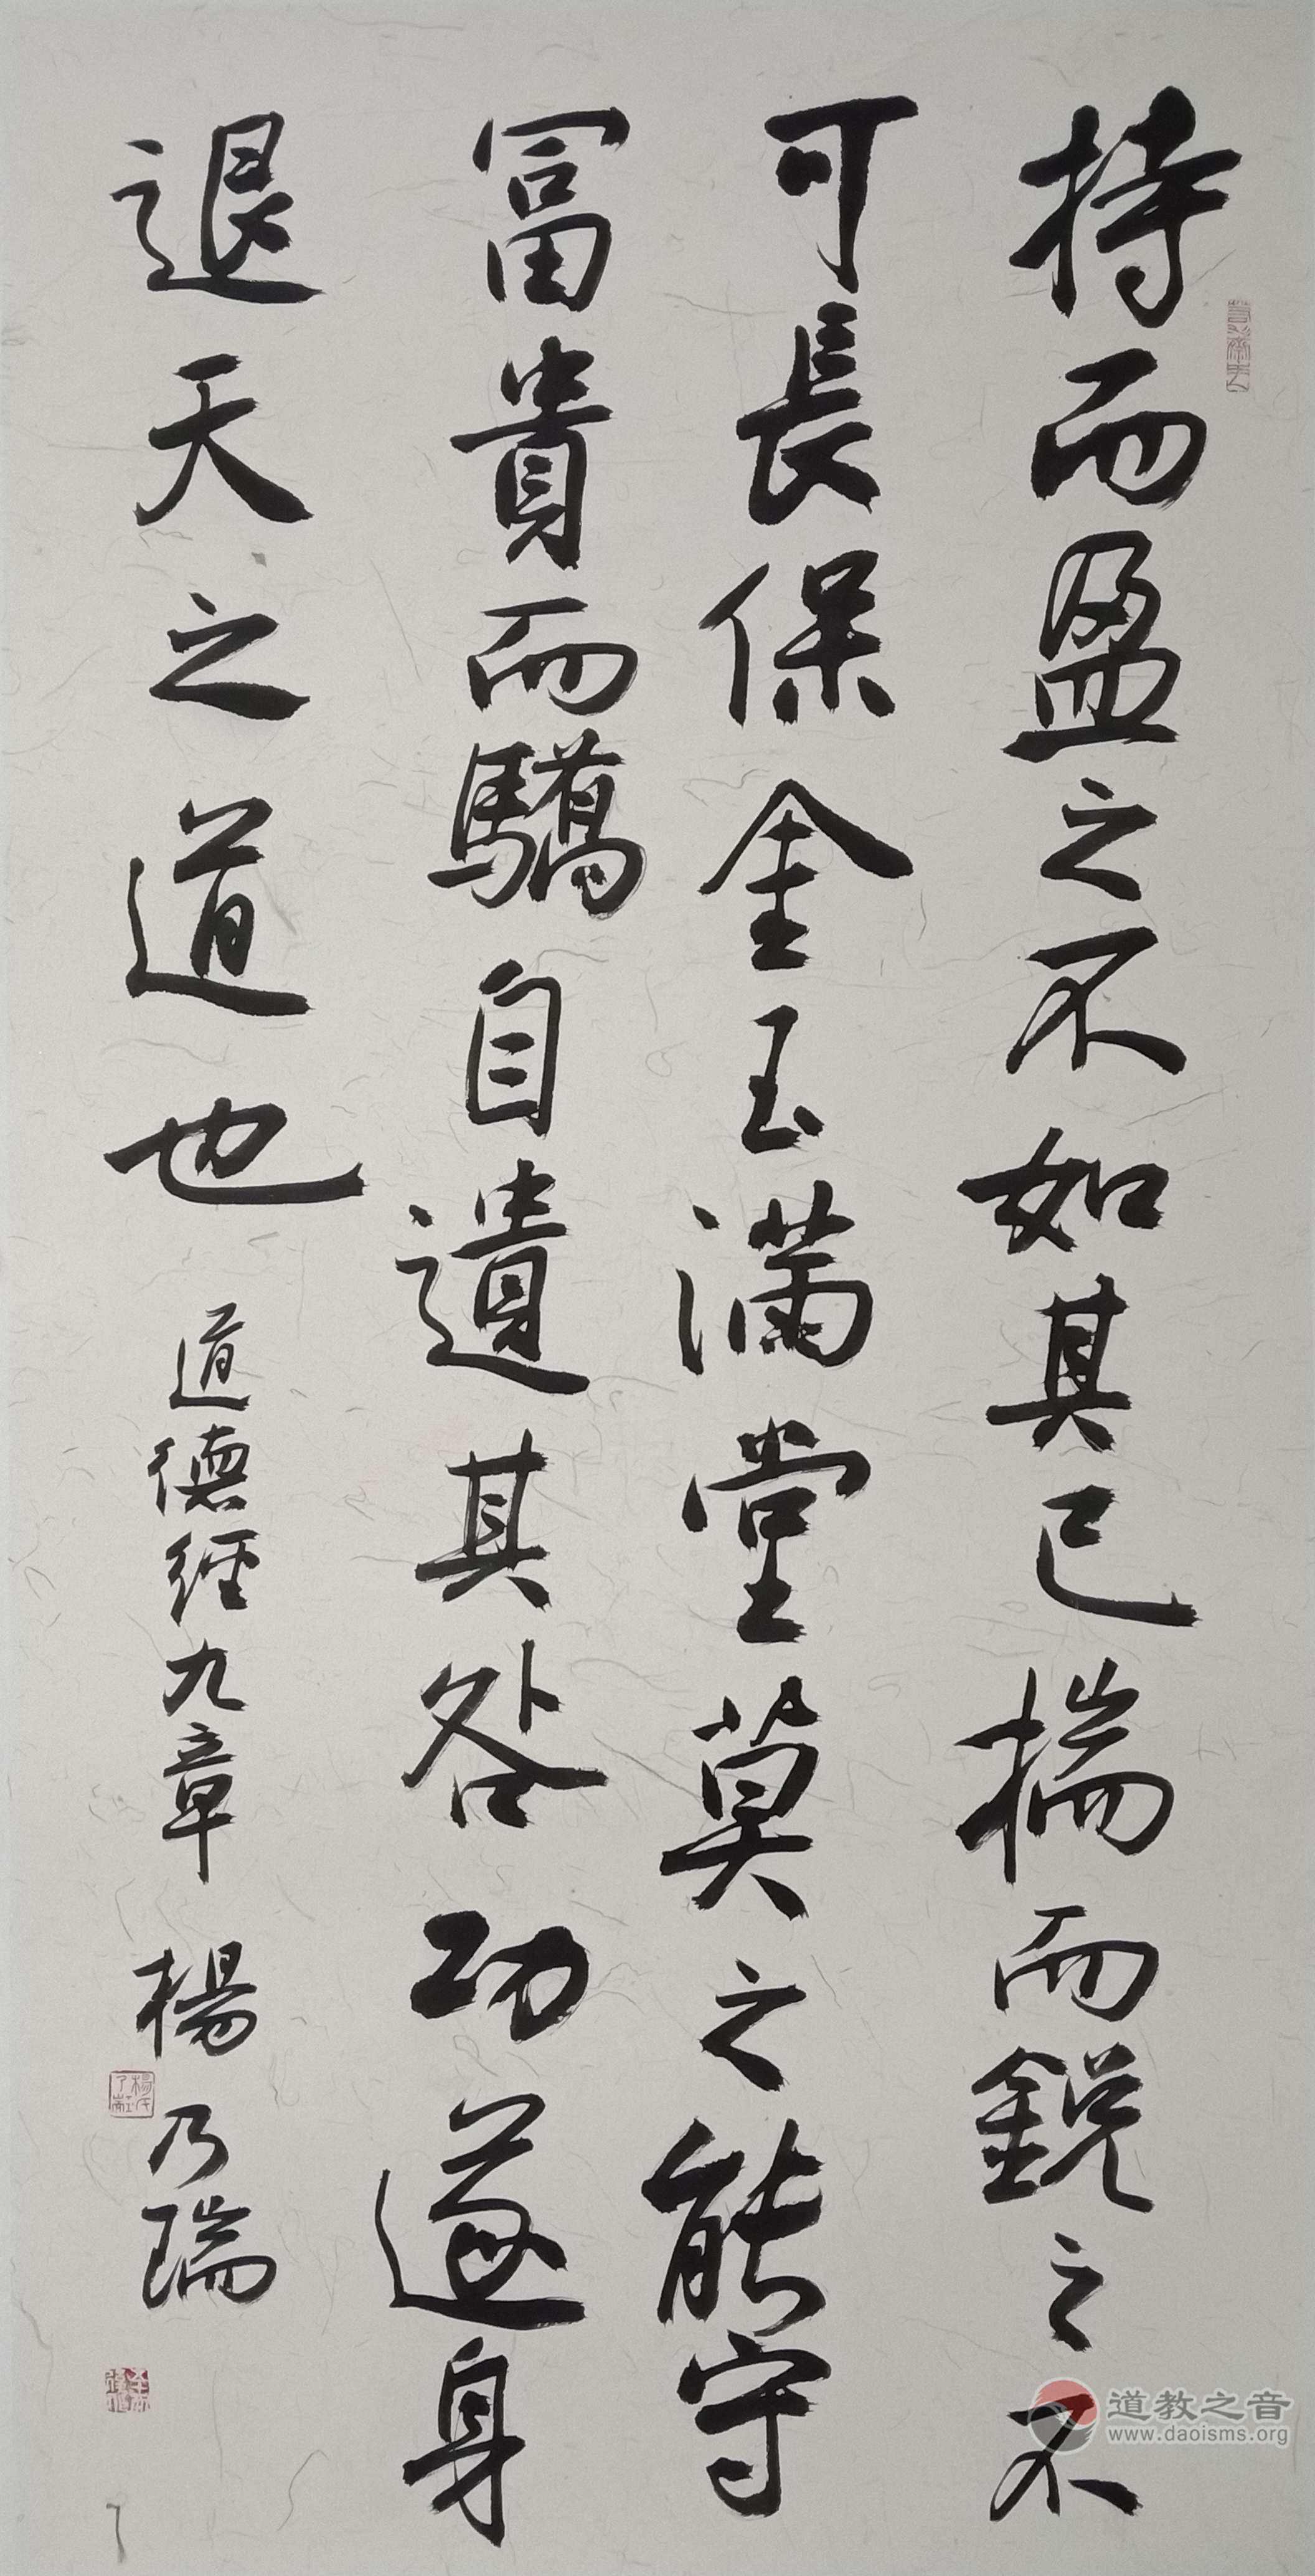 持而盈之不如其已揣而銳之不
可長保金玉滿堂莫之能守
冨貴而驕自遺其咎功遂身
退天之道也
道德經九章 楊乃瑞
道教之音
www.daoisms.org